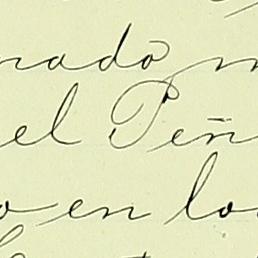 nado m
el Peñ
o en lo